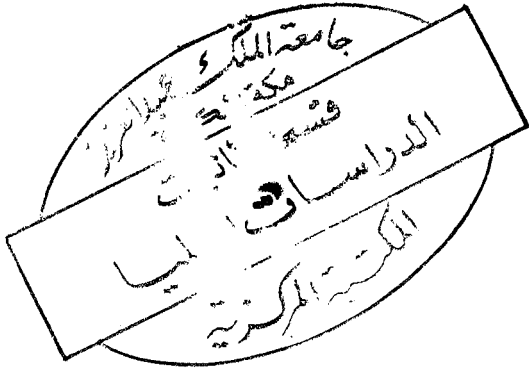 جامعة الملك عبد العزيز
مكة
قسم
الدراسات العليا
المكتبة المركزية